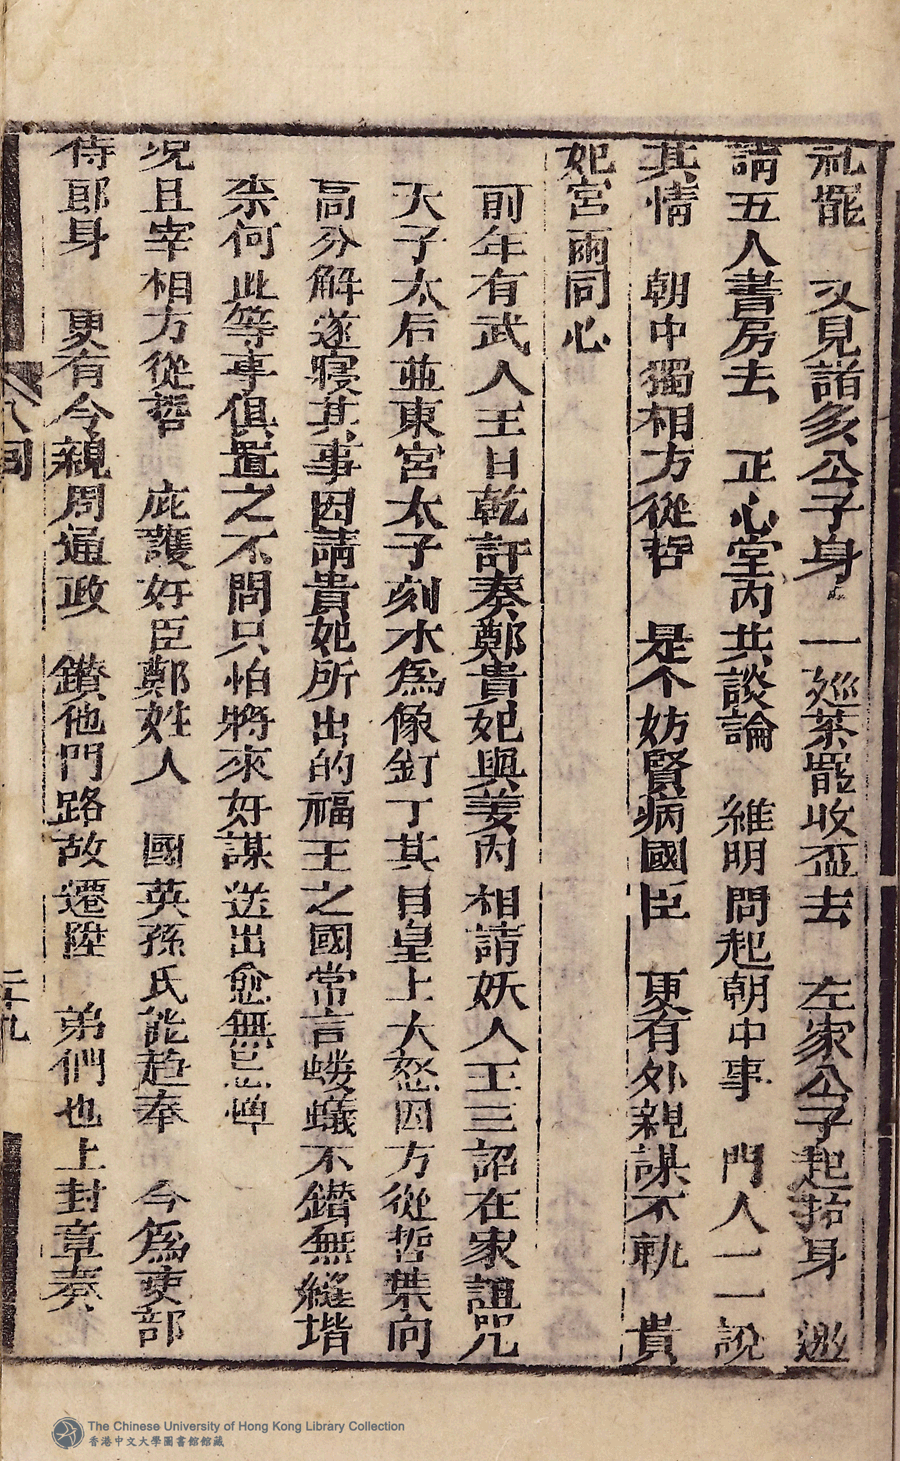 礼罷　又見諸亥公子身　一廵茶罷收盃去　左家公子起抬身　邀
請五人書房去　正心堂丙共談論　維明問起朝中事　門人一一說
其情　朝中獨相方從哲　是个妨賢病國臣　更有外親謀不軌　貴
妃宮兩同心
前年有武人王日乾訐奏鄭貴妃與姜內相請妖人王三詔在家詛咒
天子太后並東宮太子刻木為像釘丁其目皇上大怒因方從哲葉向
高分解遂寢其事因請貴妃所出的福王之國常言螻蟻不鑚無縫堦
柰何此等事俱置之不問只怕將來奸謀送出愈無忌憚
况且宰相方從哲　庇護奸臣鄭姓人　國英孫氏能趋奉　今為吏部
侍郎身　更有令親周通政　鑚他門路故遷陞　弟們也上封章奏
八回
二十九
The Chinese University of Hong Kong Library Collection
香港中文大學圖書館館藏